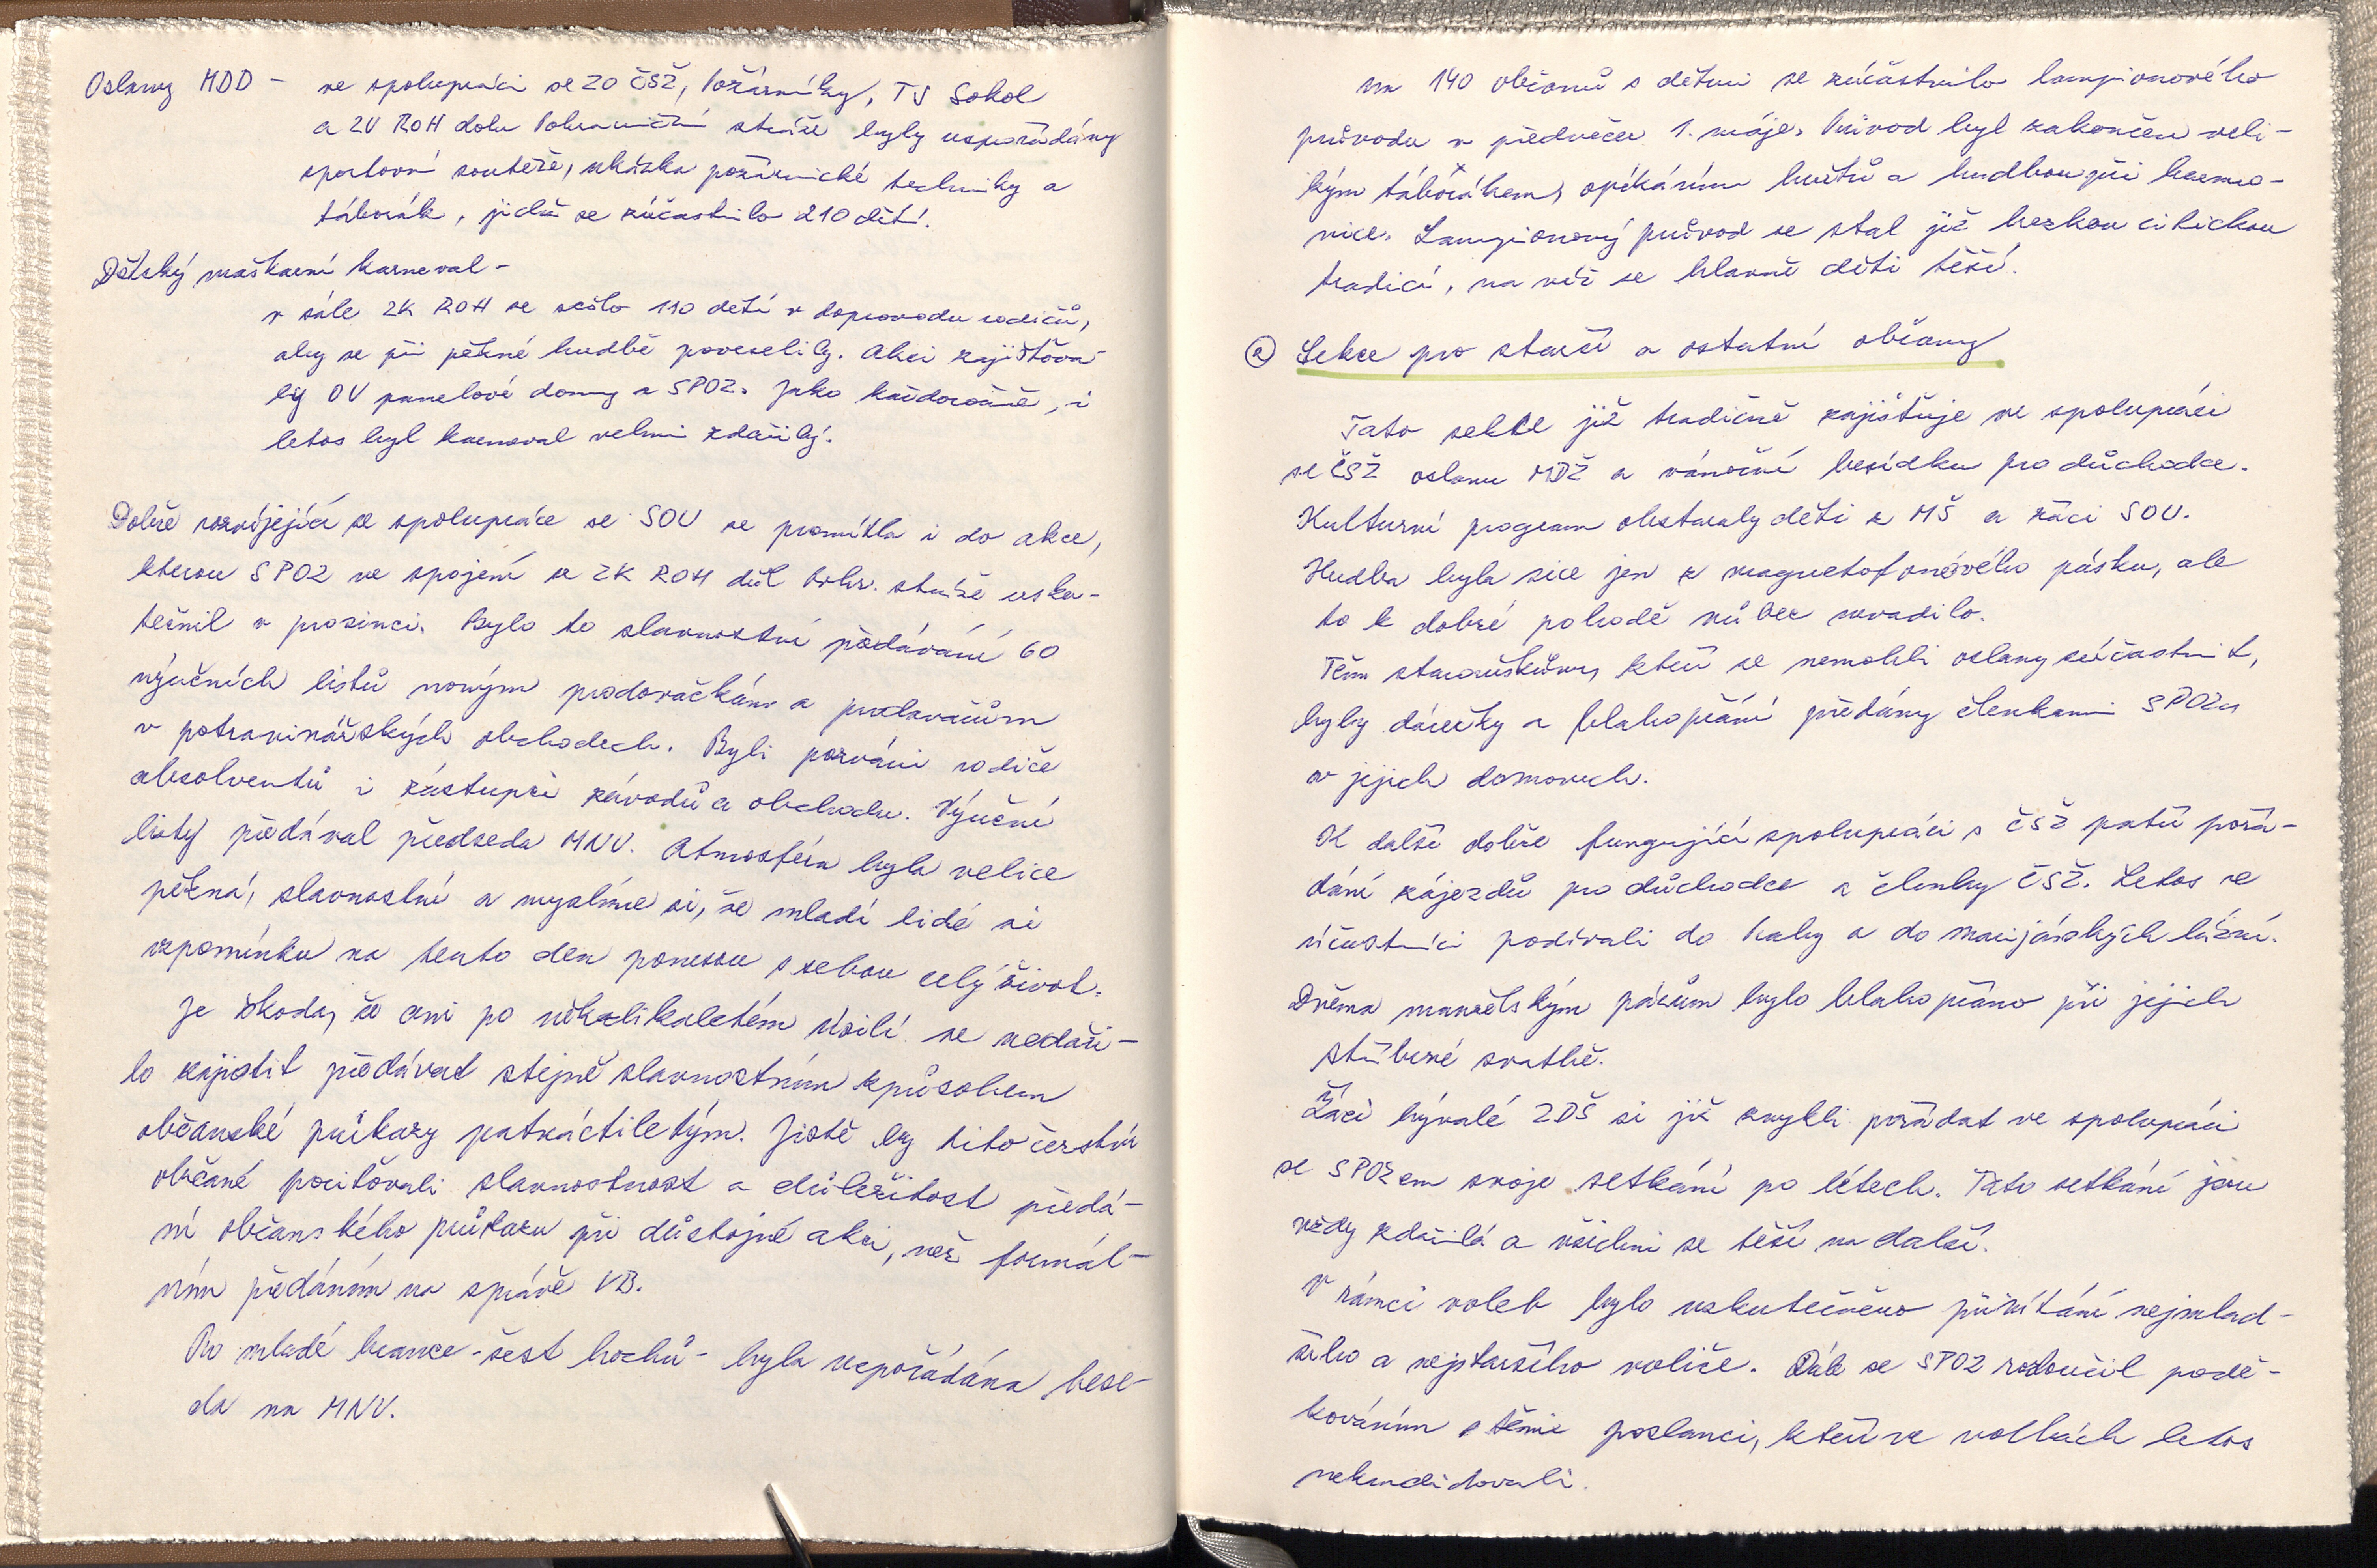 Oslavy MDD - ve spolupráci se ZO ČSŽ, Požárníky, TJ Sokol
a ZV ROH dolu Pohraniční stráže byly uspořádány
sportovní soutěže, ukázka požárnické techniky a
táborák, jichž se zúčastnilo 210 dětí.
Dětský maškarní karneval -
v sále ZK ROH se sešlo 190 dětí v doprovodu rodičů,
aby se při pěkné hudbě poveselily. Akci zajišťova-
ly OV panelové domy a SPOZ. Jako každoročně, i
letos byl karneval velmi zdařilý.
Dobře rozvíjející se spolupráce se SOU se promítla i do akce,
kterou SPOZ ve spojení se ZK ROH důl Pohr. stráže usku-
tečnil v prosinci. Bylo to slavnostní předávání 60
výučních listů novým prodavačkám a prodavačům
v potravinářských obchodech. Byli pozváni rodiče
absolventů i zástupci závodů a obchodu. Výuční
listy předával předseda MNV. Atmosféra byla velice
pěkná, slavnostní a myslíme si, že mladí lidé si
vzpomínku na tento den ponesou s sebou celý život.
Je škoda, že ani po několikaletém úsilí se nedaři-
lo zajistit předávat stejně slavnostním způsobem
občanské průkazy patnáctiletým. Jistě by tito čerství
občané pociťovali slavnostnost a důležitost předá-
ní občanského průkazu při důstojné akci, než formál-
ním předáním na správě VB.
Pro mladé brance - šest hochů - byla uspořádána bese-
da na MNV.
na 140 občanů s dětmi se zúčastnilo lampionového
průvodu v předvečer 1. máje. Průvod byl zakončen veli-
kým táborákem, opékáním buřtů a hudbou při harmo-
nice. Lampionový průvod se stal již hezkou citickou
tradicí, na něž se hlavně děti těší.
Sekce pro starší a ostatní občany
Tato sekce již tradičně zajišťuje ve spolupráci
se ČSŽ oslavu MDŽ a vánoční besídku pro důchodce.
Kulturní program obstaraly děti z MŠ a žáci SOU.
Hudba byla sice jen z magnetofonového pásku, ale
to k dobré pohodě vůbec nevadilo.
Těm staroušům, kteří se nemohli oslavy zúčastnit,
byly dárečky a blahopřání předány členkami SPOZu
v jejich domovech.
K další dobře fungující spolupráci s ČSŽ patří pořá-
dání zájezdů pro důchodce a členky ČSŽ. Letos se
účastníci podívali do Prahy a do Marijánských lázní.
Dvěma manželským párům bylo blahopřáno při jejich
stříbrné svatbě.
Žáci bývalé ZDŠ si již zvykli pořádat ve spolupráci
se SPOZem svoje setkání po létech. Tato setkání jsou
vždy zdařilá a všichni se těší na další.
V rámci voleb bylo uskutečněno přivítání nejmlad-
šího a nejstaršího voliče. Dále se SPOZ rozloučil podě-
kováním s těmi poslanci, kteří ve volbách letos
nekandidovali.